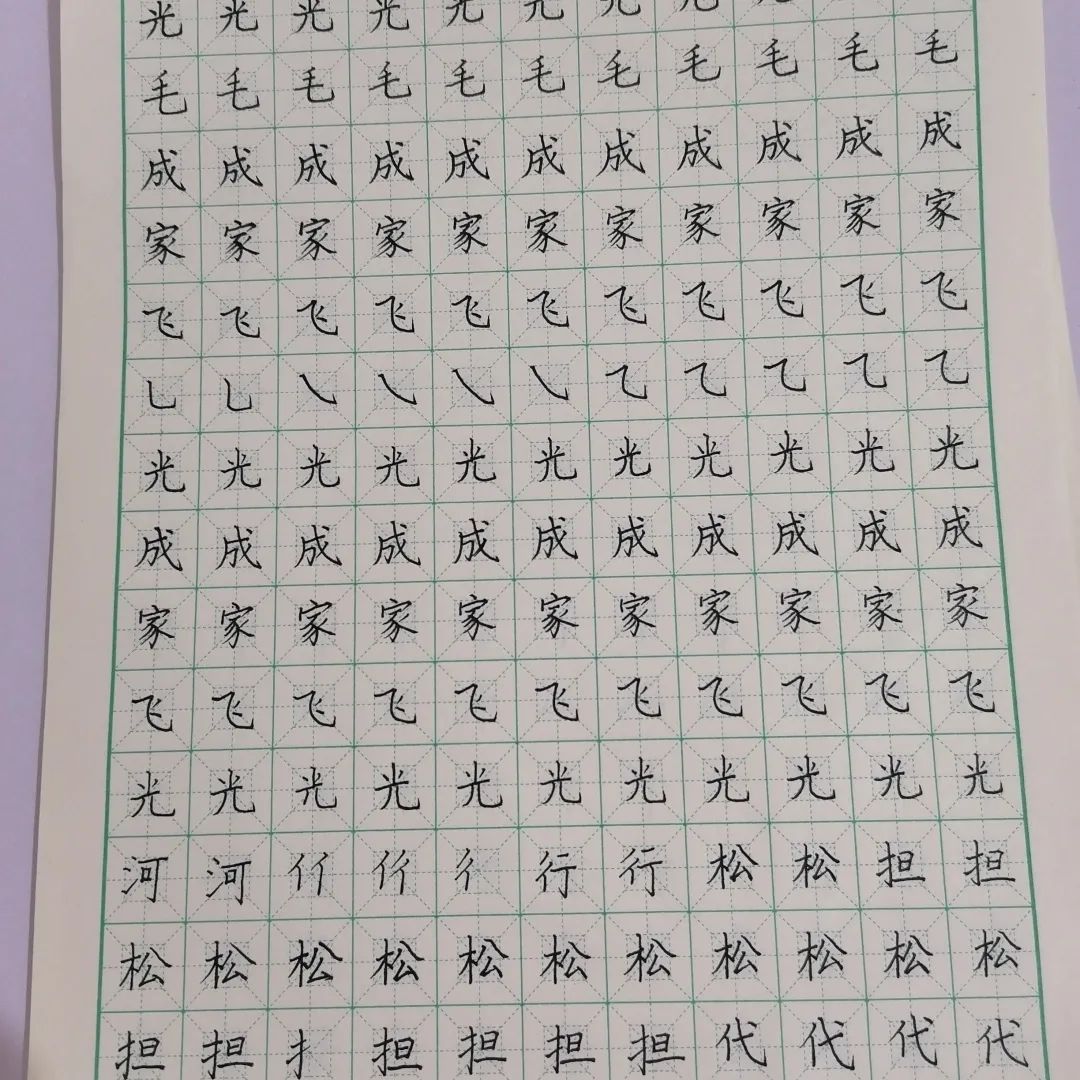 光光光光光光光光光光光
毛毛毛毛毛毛毛毛毛毛毛
成成成成成成成成成成成
家家家家家家家家家家家
飞飞飞飞飞飞飞飞飞飞飞
乚乚㇏㇏㇏㇏乙乙乙乙乙
光光光光光光光光光光光
成成成成成成成成成成成
家家家家家家家家家家家
飞飞飞飞飞飞飞飞飞飞飞
光光光光光光光光光光光
河河亻亍亻亍彳行行松松担担
松松松松松松松松松松松
担担扌担担担担代代代代